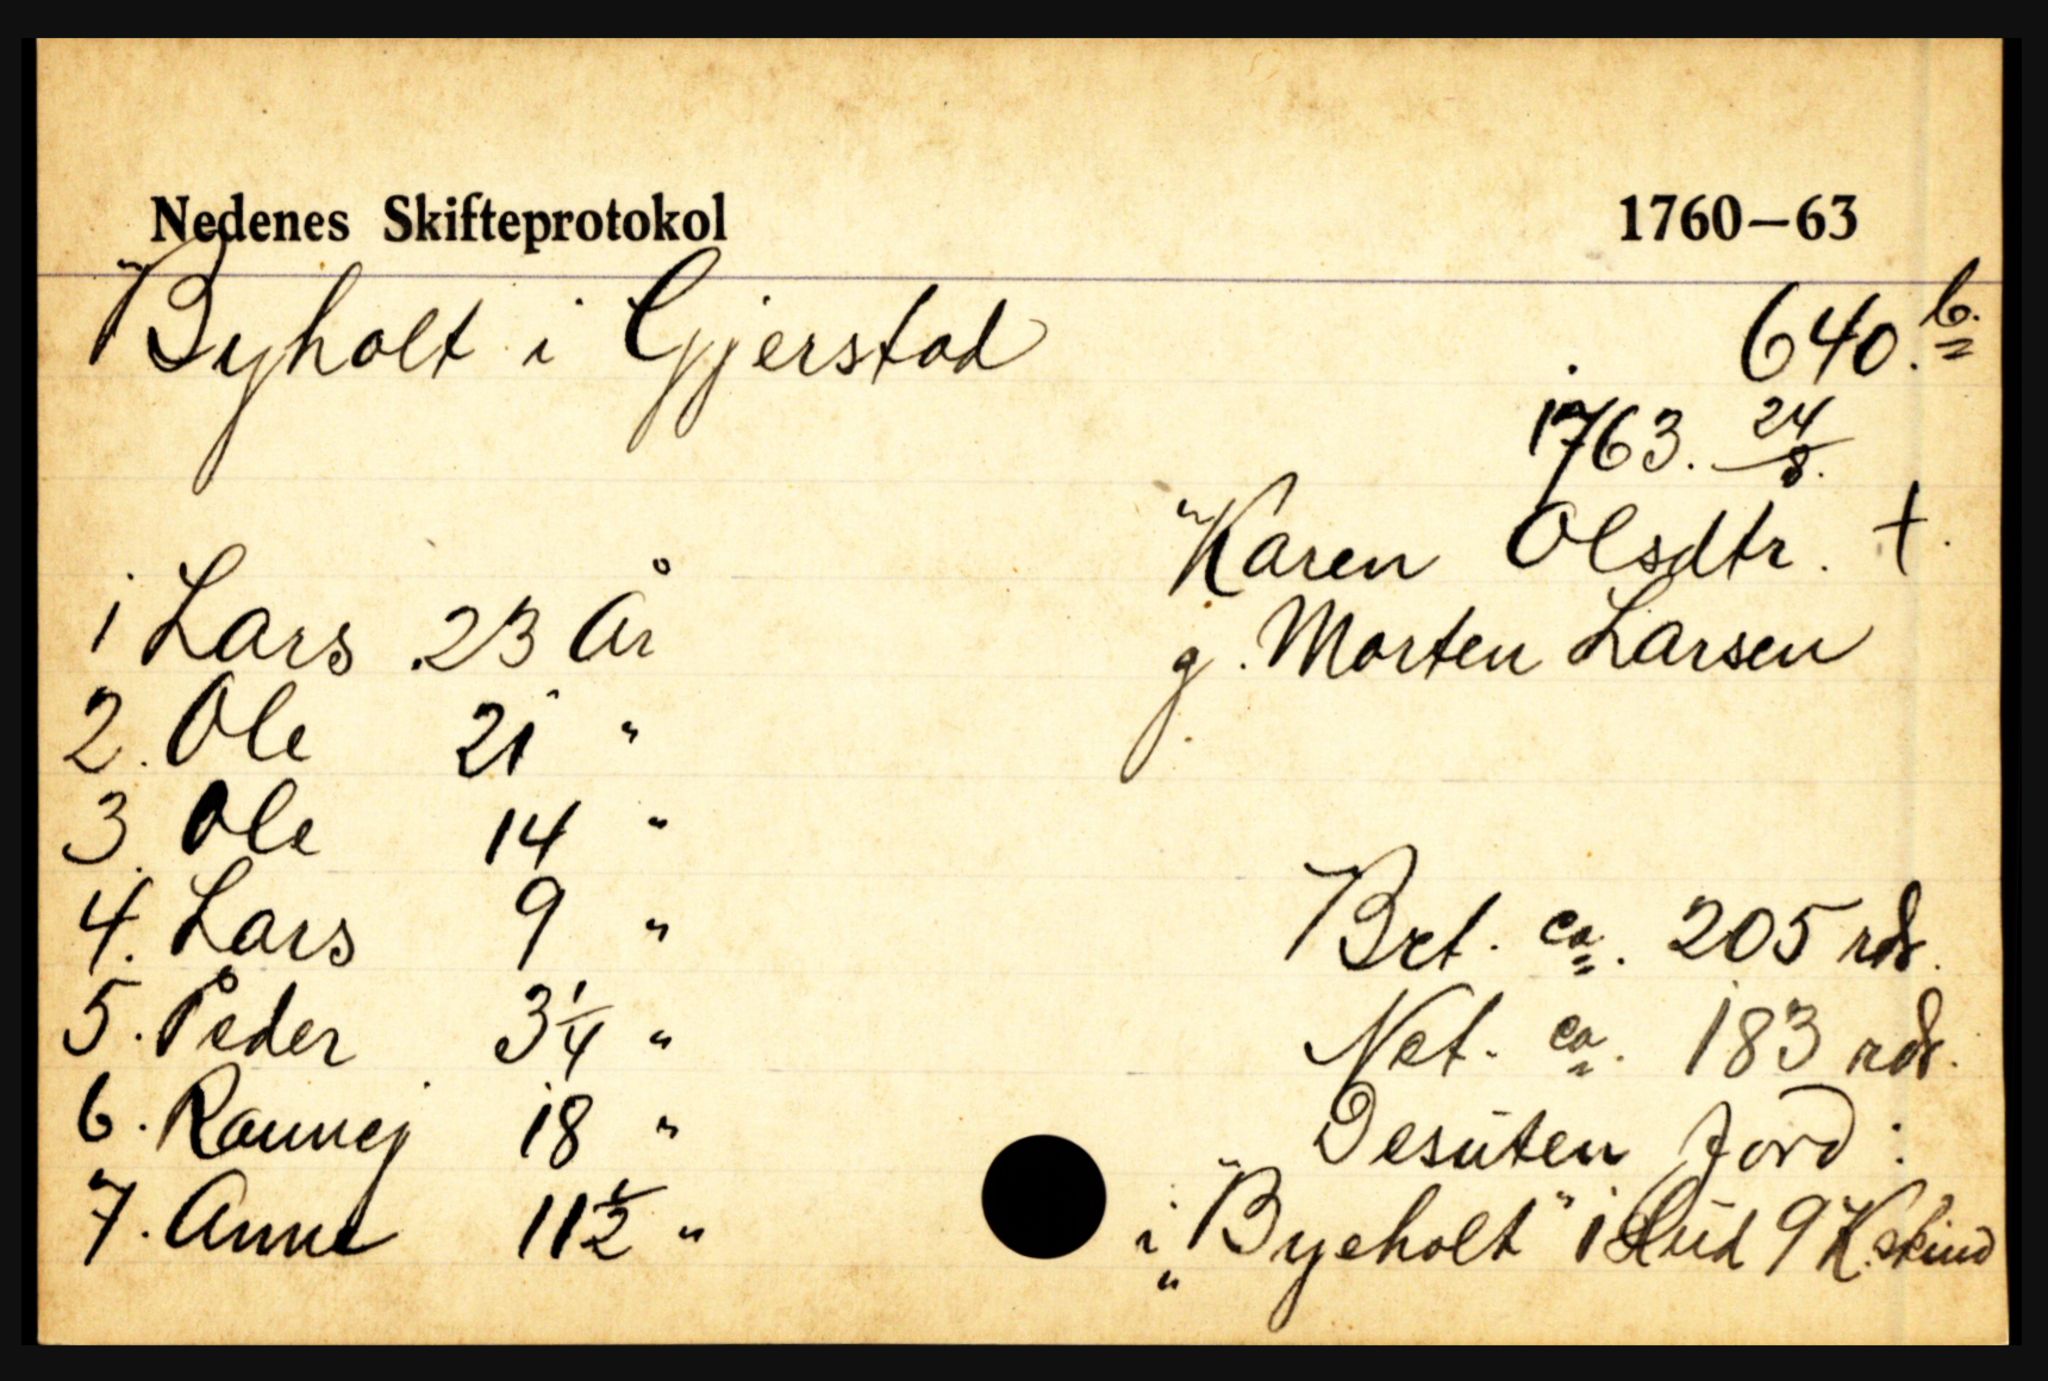 Nedenes Skifteprotokol 1760–63
Byholt i Gjerstad 640.b.
1763. 24/8.
Karen Olsdtr. †.
1 Lars 23 År g. Morten Larsen
2. Ole 21 "
3. Ole 14 "
4. Lars 9 " Brt. ca. 205 rdr.
5. Peder 3 1/4 " Net. ca. 183 rdr.
6. Raunej 18 " Desuten Jord:
7. Anne 11 1/2 " i "Byeholt" 1 Hud 9 K.skind
"